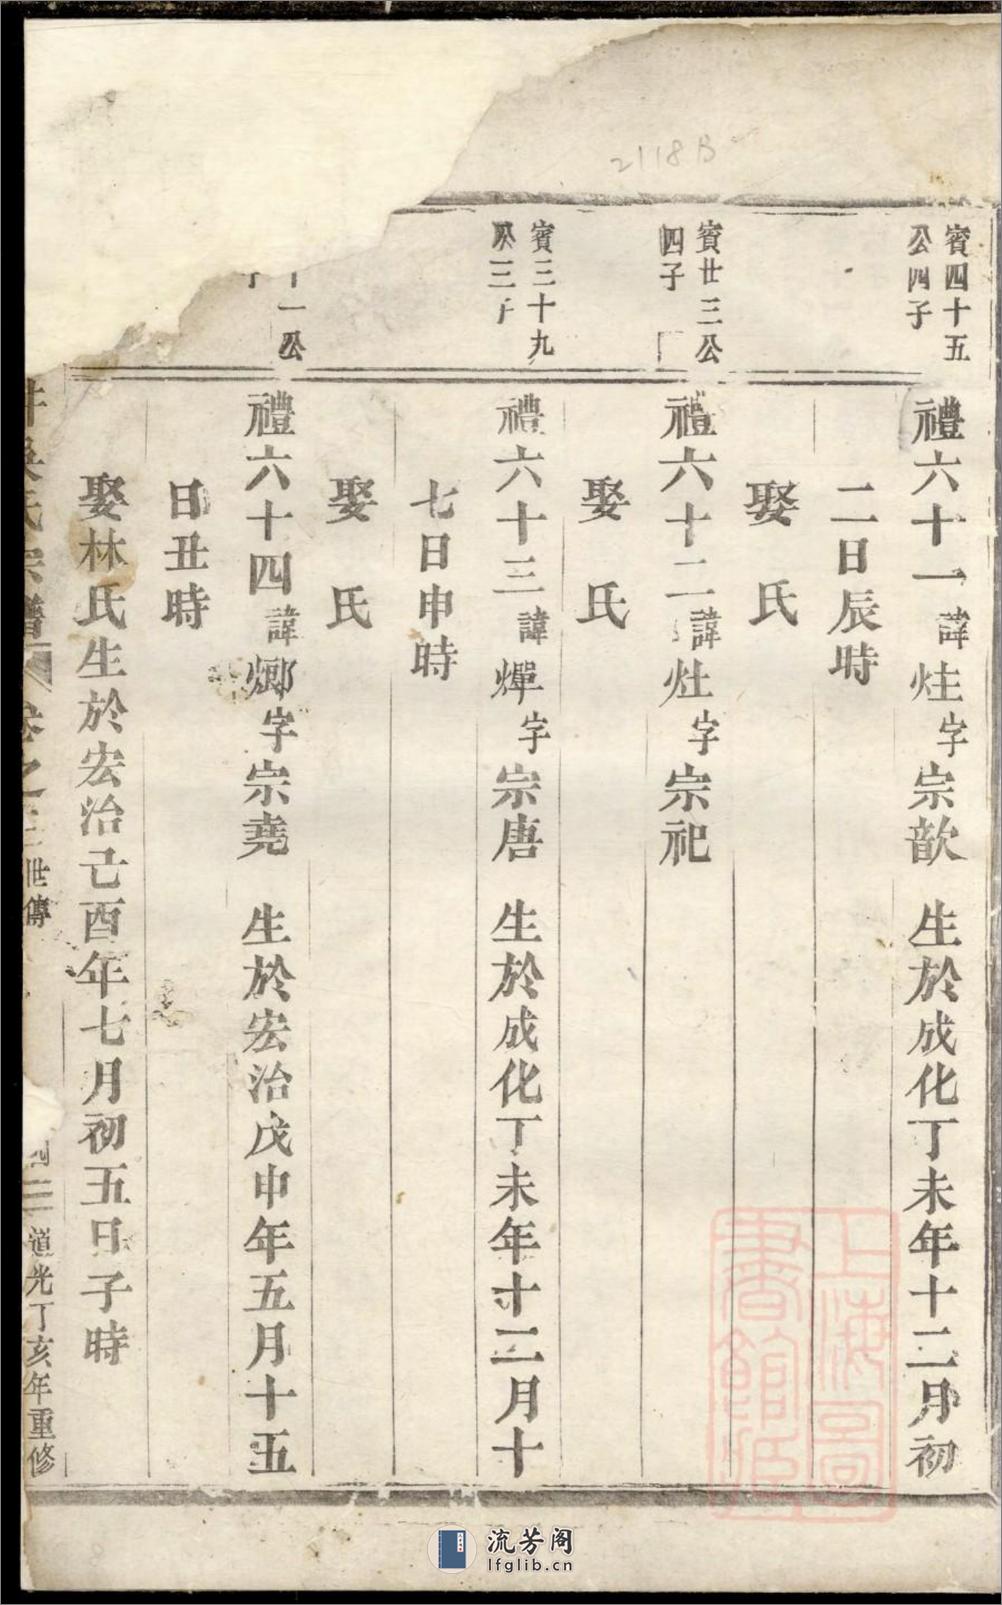 2118B
賓四十五
公四子
禮六十一諱炷字宗歆 生於成化丁未年十二月初
二日辰時
娶 氏
賓廿三公
四子
禮六十二諱灶字宗祀
娶 氏
賓三十九
公三子
禮六十三諱燀字宗唐 生於成化丁未年十二月十
七日申時
娶 氏
十一公
禮六十四諱 字宗堯 生於宏治戊申年五月十五
日丑時
娶林氏生於宏治己酉年七月初五日子時
吳氏宗譜 卷之三 世傳 道光丁亥年重修
上海圖書館藏
流芳阁
lfglib.cn